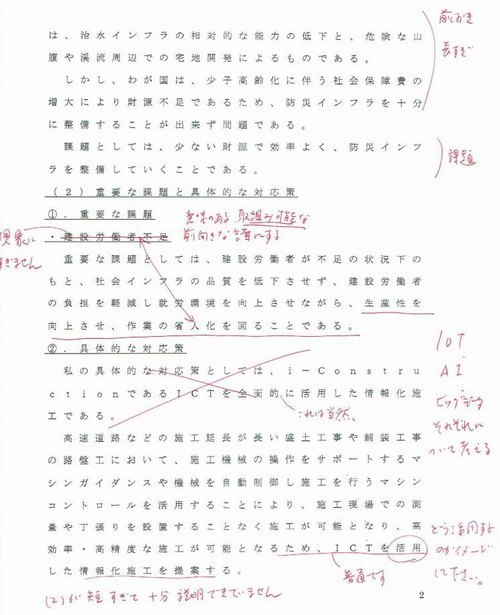 は、治水インフラの相対的な能力の低下と、危険な山
腹や渓流周辺での宅地開発によるものである。
前おき
長すぎ
しかし、わが国は、少子高齢化に伴う社会保障費の
増大により財源不足であるため、防災インフラを十分
に整備することが出来ず問題である。
課題としては、少ない財源で効率よく、防災インフ
ラを整備していくことである。
課題
(2)重要な課題と具体的な対応策
①.重要な課題
意味のある 取組み可能な
・建設労働者不足
前向きな言葉にする
現象に
すぎません
重要な課題としては、建設労働者が不足の状況下の
もと、社会インフラの品質を低下させず、建設労働者
の負担を軽減し就労環境を向上させながら、生産性を
向上させ、作業の省人化を図ることである。
②.具体的な対応策
私の具体的な対応策としては、i-Constru
ctionであるICTを全面的に活用した情報化施
工である。
これは当然、
IOT
AI
ビッグデータ
それぞれに
ついて考える
高速道路などの施工延長が長い盛土工事や舗装工事
の路盤工において、施工機械の操作をサポートするマ
シンガイダンスや機械を自動制御し施工を行うマシン
コントロールを活用することにより、施工現場での測
量や丁張りを設置することなく施工が可能となり、高
効率・高精度な施工が可能となるため、ICTを活用
した情報化施工を提案する。
普通です
どう活用する
のかイメージ
して下さい。
(2)が短すぎて十分説明できていません
2